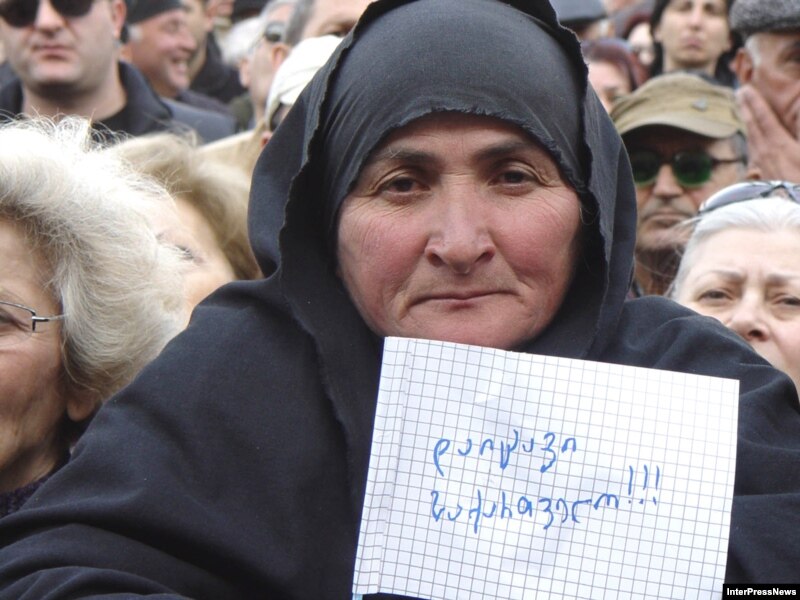 დაიცავი
საქართველო!!!
InterPressNews